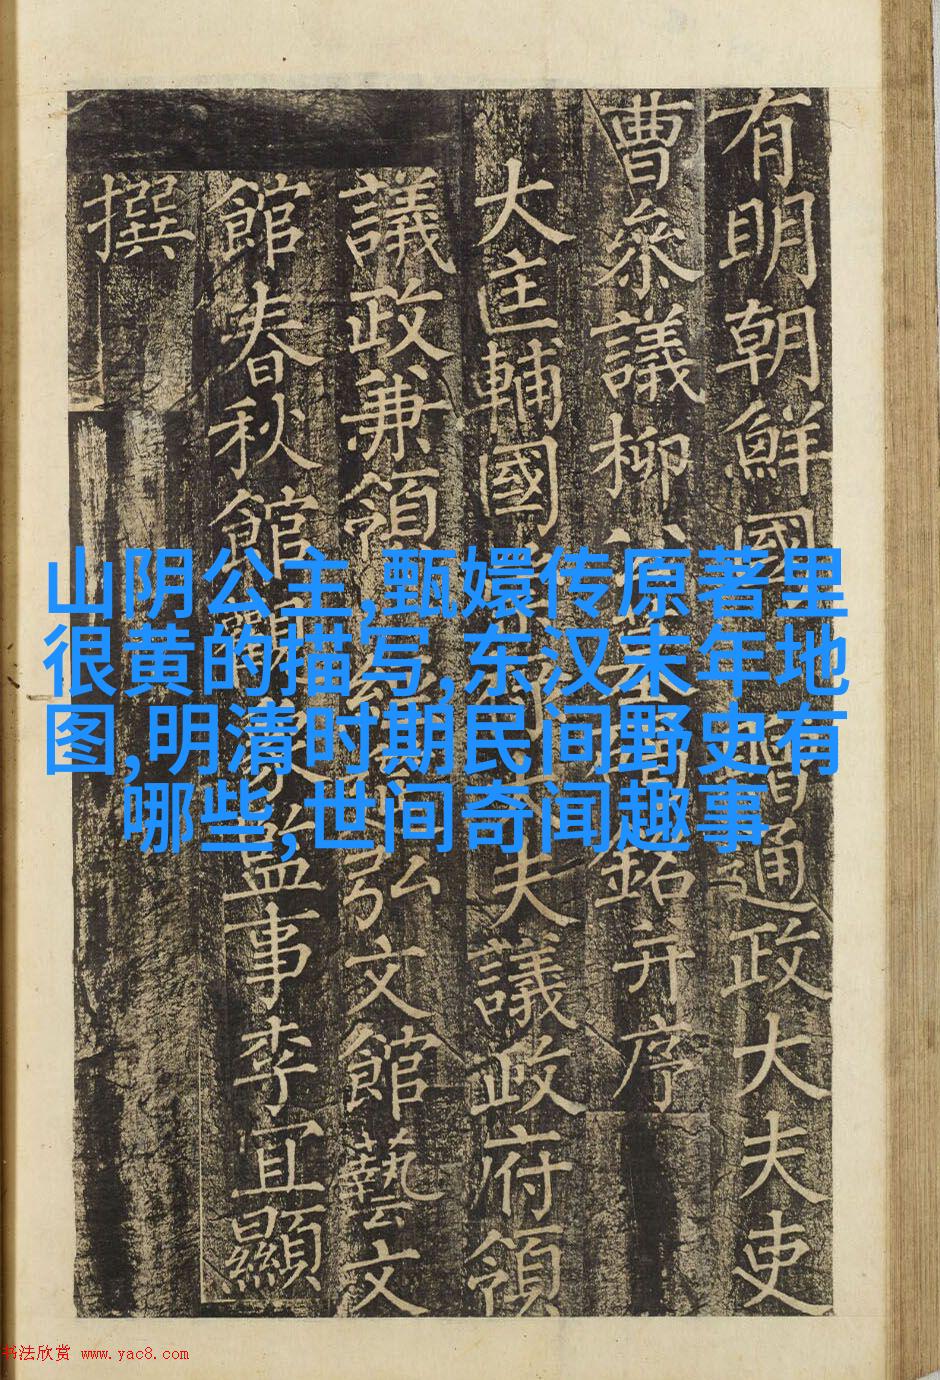 有明朝鮮國贈通政大夫吏
曹叅議柳公墓碣銘并序
大匡輔國崇祿大夫議政府領
議政兼領經筵弘文館藝文
館春秋館觀象監事李宜顯
撰
山阴公主,甄嬛传原著里
很黄的描写,东汉末年地
图,明清时期民间野史有
哪些,世间奇闻趣事
书法欣赏 www.yac8.com